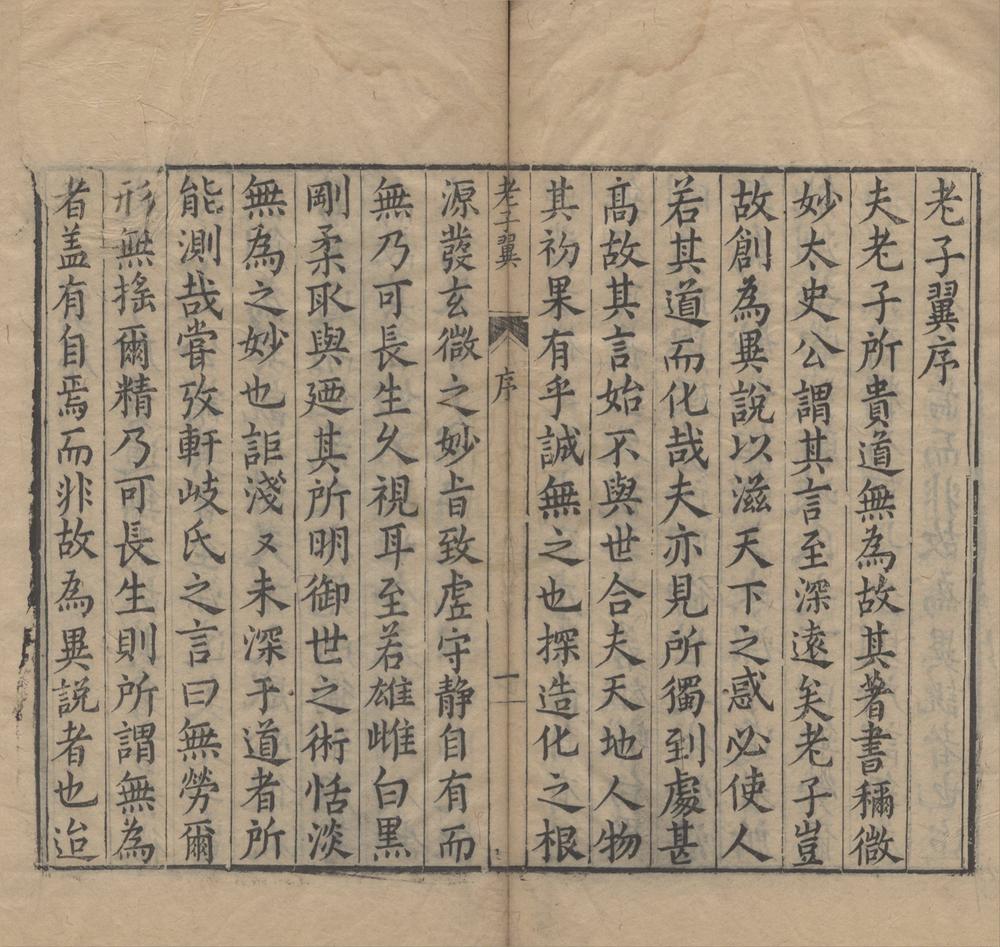 老子翼序
夫老子所貴道無為故其著書稱微
妙太史公謂其言至深遠矣老子豈
故創為異說以滋天下之惑必使人
若其道而化哉夫亦見所獨到處甚
高故其言始不與世合夫天地人物
其初果有乎誠無之也探造化之根
老子翼 序 一
源發玄微之妙旨致虛守靜自有而
無乃可長生久視耳至若雄雌白黑
剛柔取與廼其所明御世之術恬淡
無為之妙也詎淺又未深于道者所
能測哉嘗攷軒岐氏之言曰無勞爾
形無搖爾精乃可長生則所謂無為
者盖有自焉而非故為異說者也迨